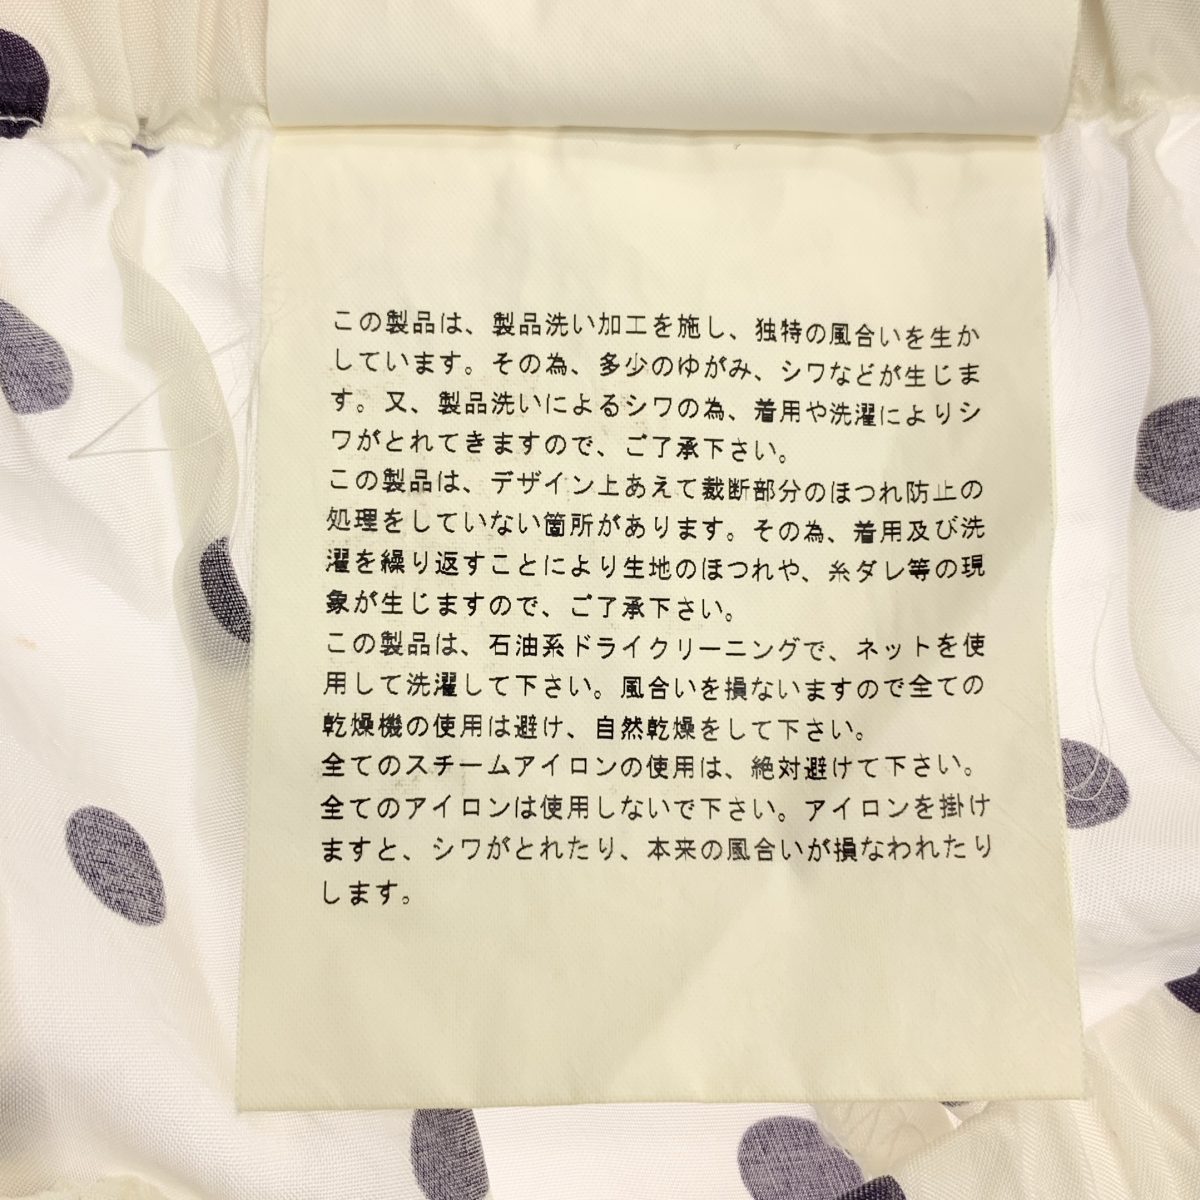 この製品は、製品洗い加工を施し、独特の風合いを生か
しています。その為、多少のゆがみ、シワなどが生じま
す。又、製品洗いによるシワの為、着用や洗濯によりシ
ワがとれてきますので、ご了承下さい。
この製品は、デザイン上あえて裁断部分のほつれ防止の
処理をしていない箇所があります。その為、着用及び洗
濯を繰り返すことにより生地のほつれや、糸ダレ等の現
象が生じますので、ご了承下さい。
この製品は、石油系ドライクリーニングで、ネットを使
用して洗濯して下さい。風合いを損ないますので全ての
乾燥機の使用は避け、自然乾燥をして下さい。
全てのスチームアイロンの使用は、絶対避けて下さい。
全てのアイロンは使用しないで下さい。アイロンを掛け
ますと、シワがとれたり、本来の風合いが損なわれたり
します。